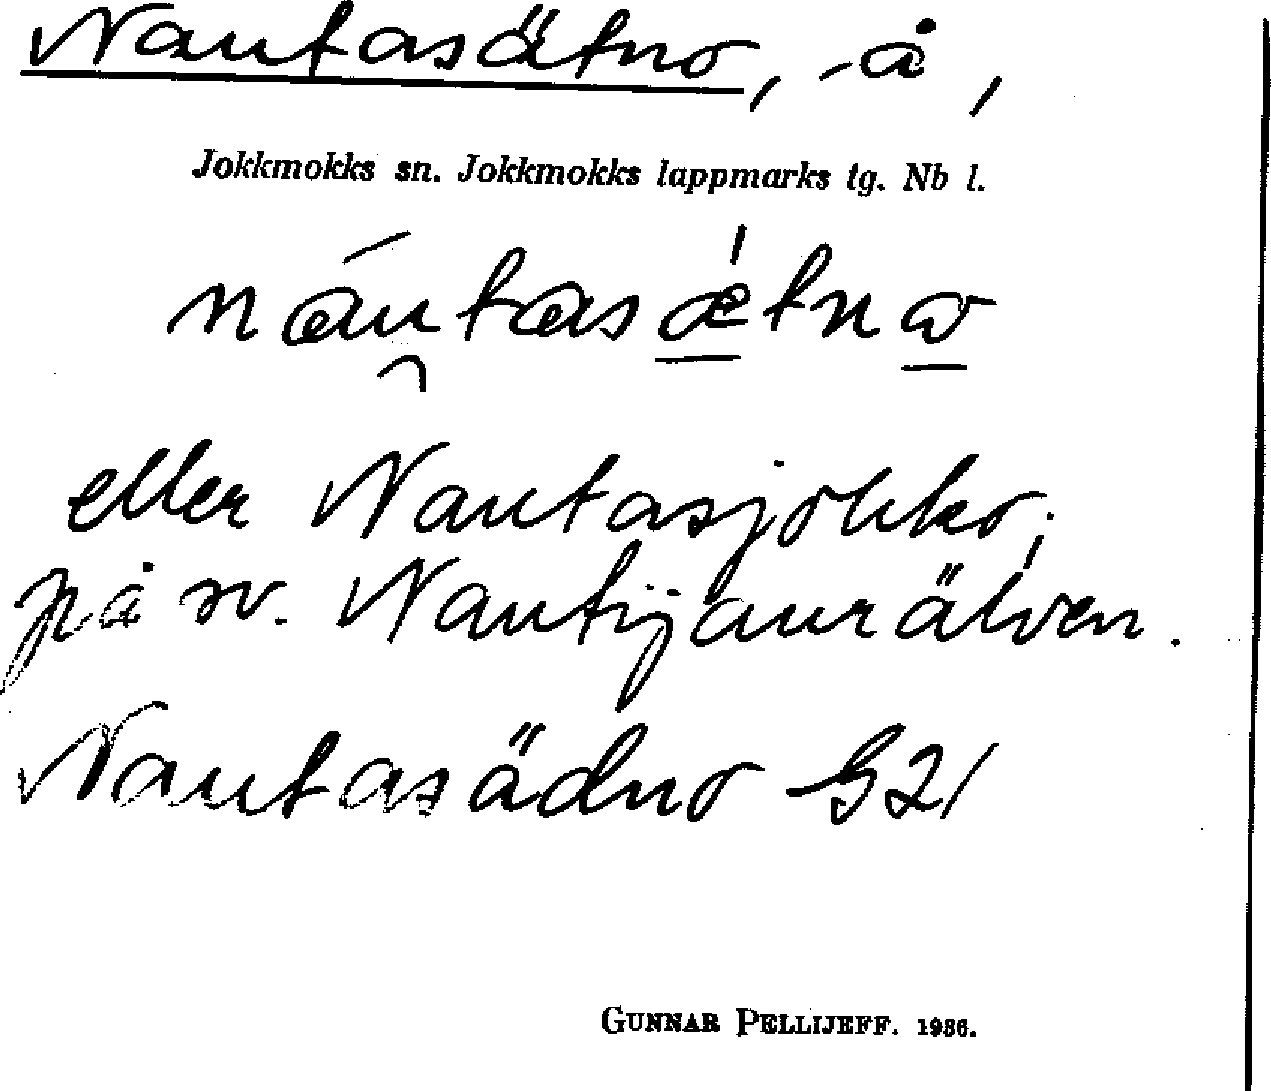 Nautasätno, -å,
Jokkmokks sn. Jokkmokks lappmarks tg. Nb l.
náu̯tasǽtnɷ
eller Nautasjokko;
på sv. Nautijaurälven.
Nautasädno G21
GUNNAR PELLIJEFF. 1936.